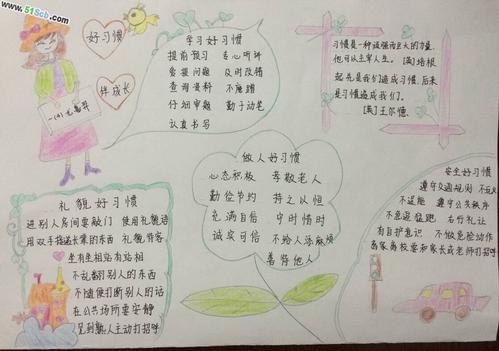 www.51Scb.com
好习惯
伴成长
学习好习惯
提前预习 专心听讲
爱提问题 及时改错
查询资料 不磨蹭
仔细审题 勤于动笔
认真书写
习惯是一种顽强而巨大的力量,
他可以主宰人生。[英]培根
起先是我们造成习惯,后来
是习惯造成我们。
[英]王尔德
做人好习惯
心态积极 孝敬老人
勤俭节约 持之以恒
充满自信 守时惜时
诚实可信 不给人添麻烦
善待他人
礼貌好习惯
进别人房间要敲门 使用礼貌语
用双手接递长辈的东西 礼貌待客
坐有坐相站有站相
不乱翻别人的东西
不随便打断别人的话
在公共场所要安静
见到熟人主动打招呼
安全好习惯
遵守交通规则
不逞能 遵守公共秩序
不急追猛跑 右行礼让
有自护意识 不做危险动作
离家离校要和家长或老师打招呼